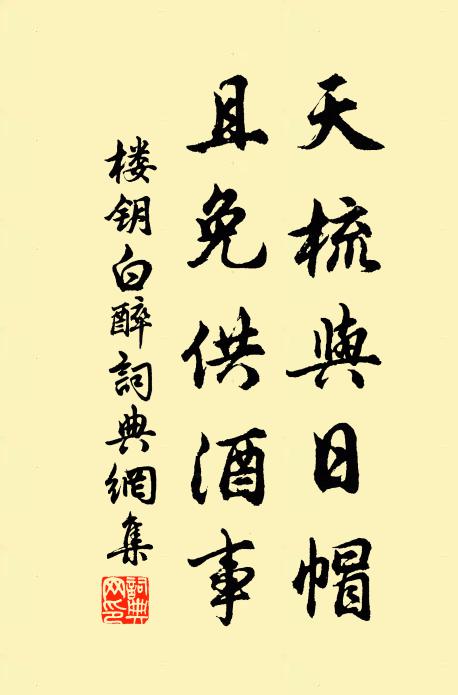 天梳與日帽
且免供酒事
楼钥白醉詞典網集
詞典